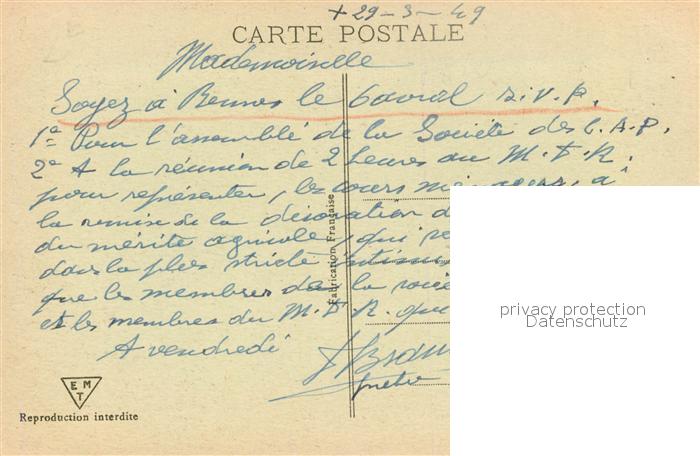 + 29-3-49
CARTE POSTALE
Mademoiselle
Soyez à Rennes le 6 avril s.V.p.
1° Pour l'assemblé de la Société des C.A.P.
2° A la réunion de 2 heures du M.F.R.
pour représenter, les cours ménagers, à
la remise de la décoration d
du mérite agricole, qui se
dans la plus stricte intim
que les membres de la socié
et les membres du M.F.R. qui
A vendredi
Fabrication Française
EMT
Reproduction interdite
privacy protection
Datenschutz